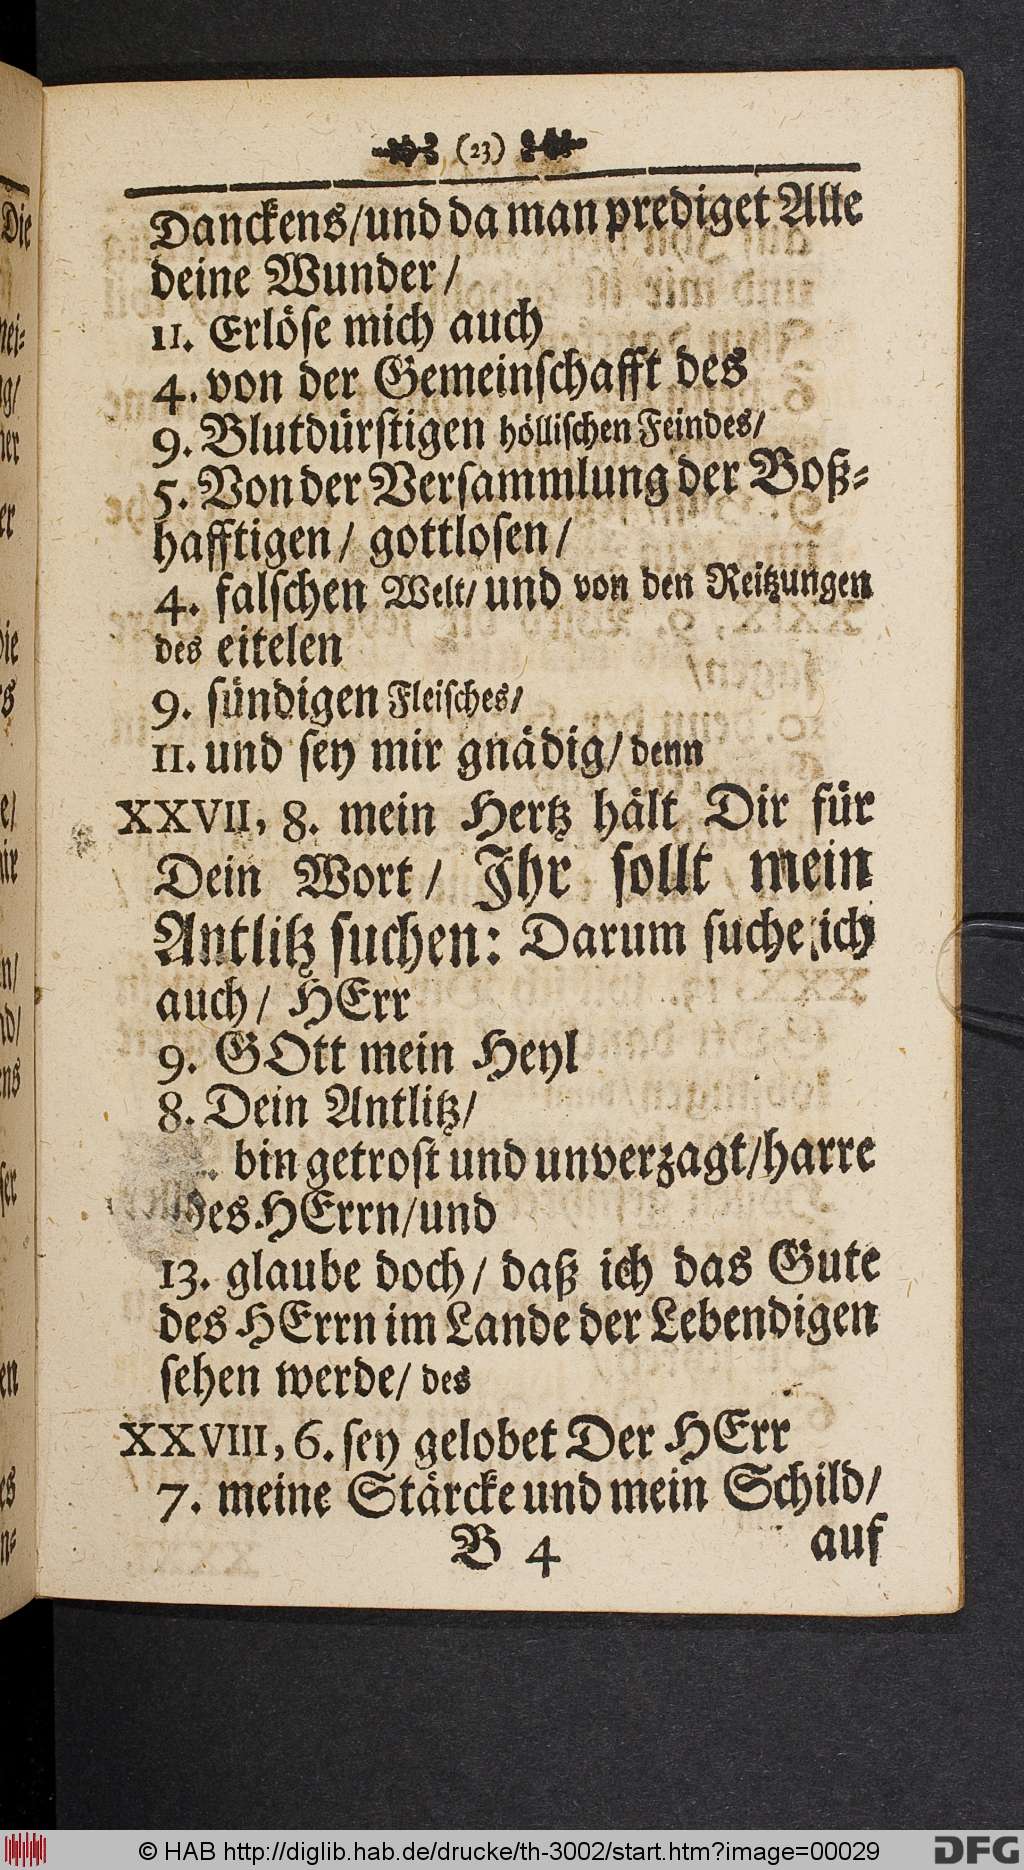 (23)
Danckens/und da man prediget Alle
deine Wunder/
11. Erlöse mich auch
4. von der Gemeinschafft des
9. Blutdürstigen höllischen Feindes/
5. Von der Versammlung der Boß-
hafftigen/ gottlosen/
4. falschen Welt/ und von den Reitzungen
des eitelen
9. sündigen Fleisches/
11. und sey mir gnädig/ denn
XXVII, 8. mein Hertz hält Dir für
Dein Wort/ Ihr sollt mein
Antlitz suchen: Darum suche ich
auch/ HErr
9. GOtt mein Heyl
8. Dein Antlitz/
bin getrost und unverzagt/harre
des HErrn/und
13. glaube doch/ daß ich das Gute
des HErrn im Lande der Lebendigen
sehen werde/ des
XXVIII, 6. sey gelobet Der HErr
7. meine Stärcke und mein Schild/
B 4 auf
© HAB http://diglib.hab.de/drucke/th-3002/start.htm?image=00029
DFG